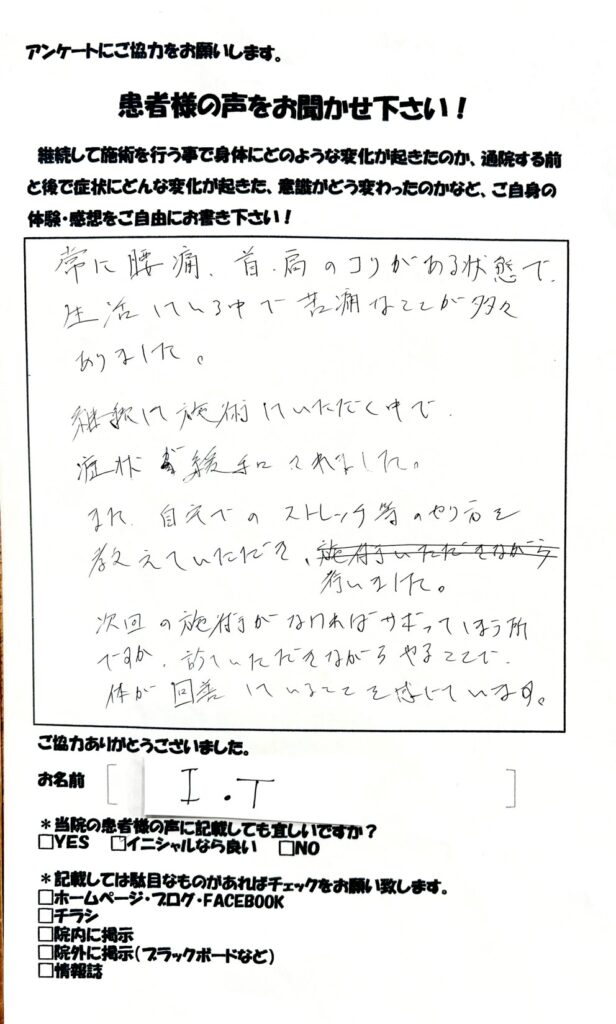 アンケートにご協力をお願いします。
患者様の声をお聞かせ下さい！
継続して施術を行う事で身体にどのような変化が起きたのか、通院する前
と後で症状にどんな変化が起きた、意識がどう変わったのかなど、ご自身の
体験・感想をご自由にお書き下さい！
常に腰痛、首、肩のコリがある状態で、
生活している中で苦痛なことが多々
ありました。
継続して施術していただく中で、
症状が緩和されました。
また、自宅でのストレッチ等のやり方を
教えていただき、施術ていただきながら
行いました。
次回の施術がなければサボってしまう所
ですが、診ていただきながらやることで、
体が回善していることを感じています。
ご協力ありがとうございました。
お名前 I.T
＊当院の患者様の声に記載しても宜しいですか？
□YES □イニシャルなら良い □NO
＊記載しては駄目なものがあればチェックをお願い致します。
□ホームページ・ブログ・FACEBOOK
□チラシ
□院内に掲示
□院外に掲示（ブラックボードなど）
□情報誌